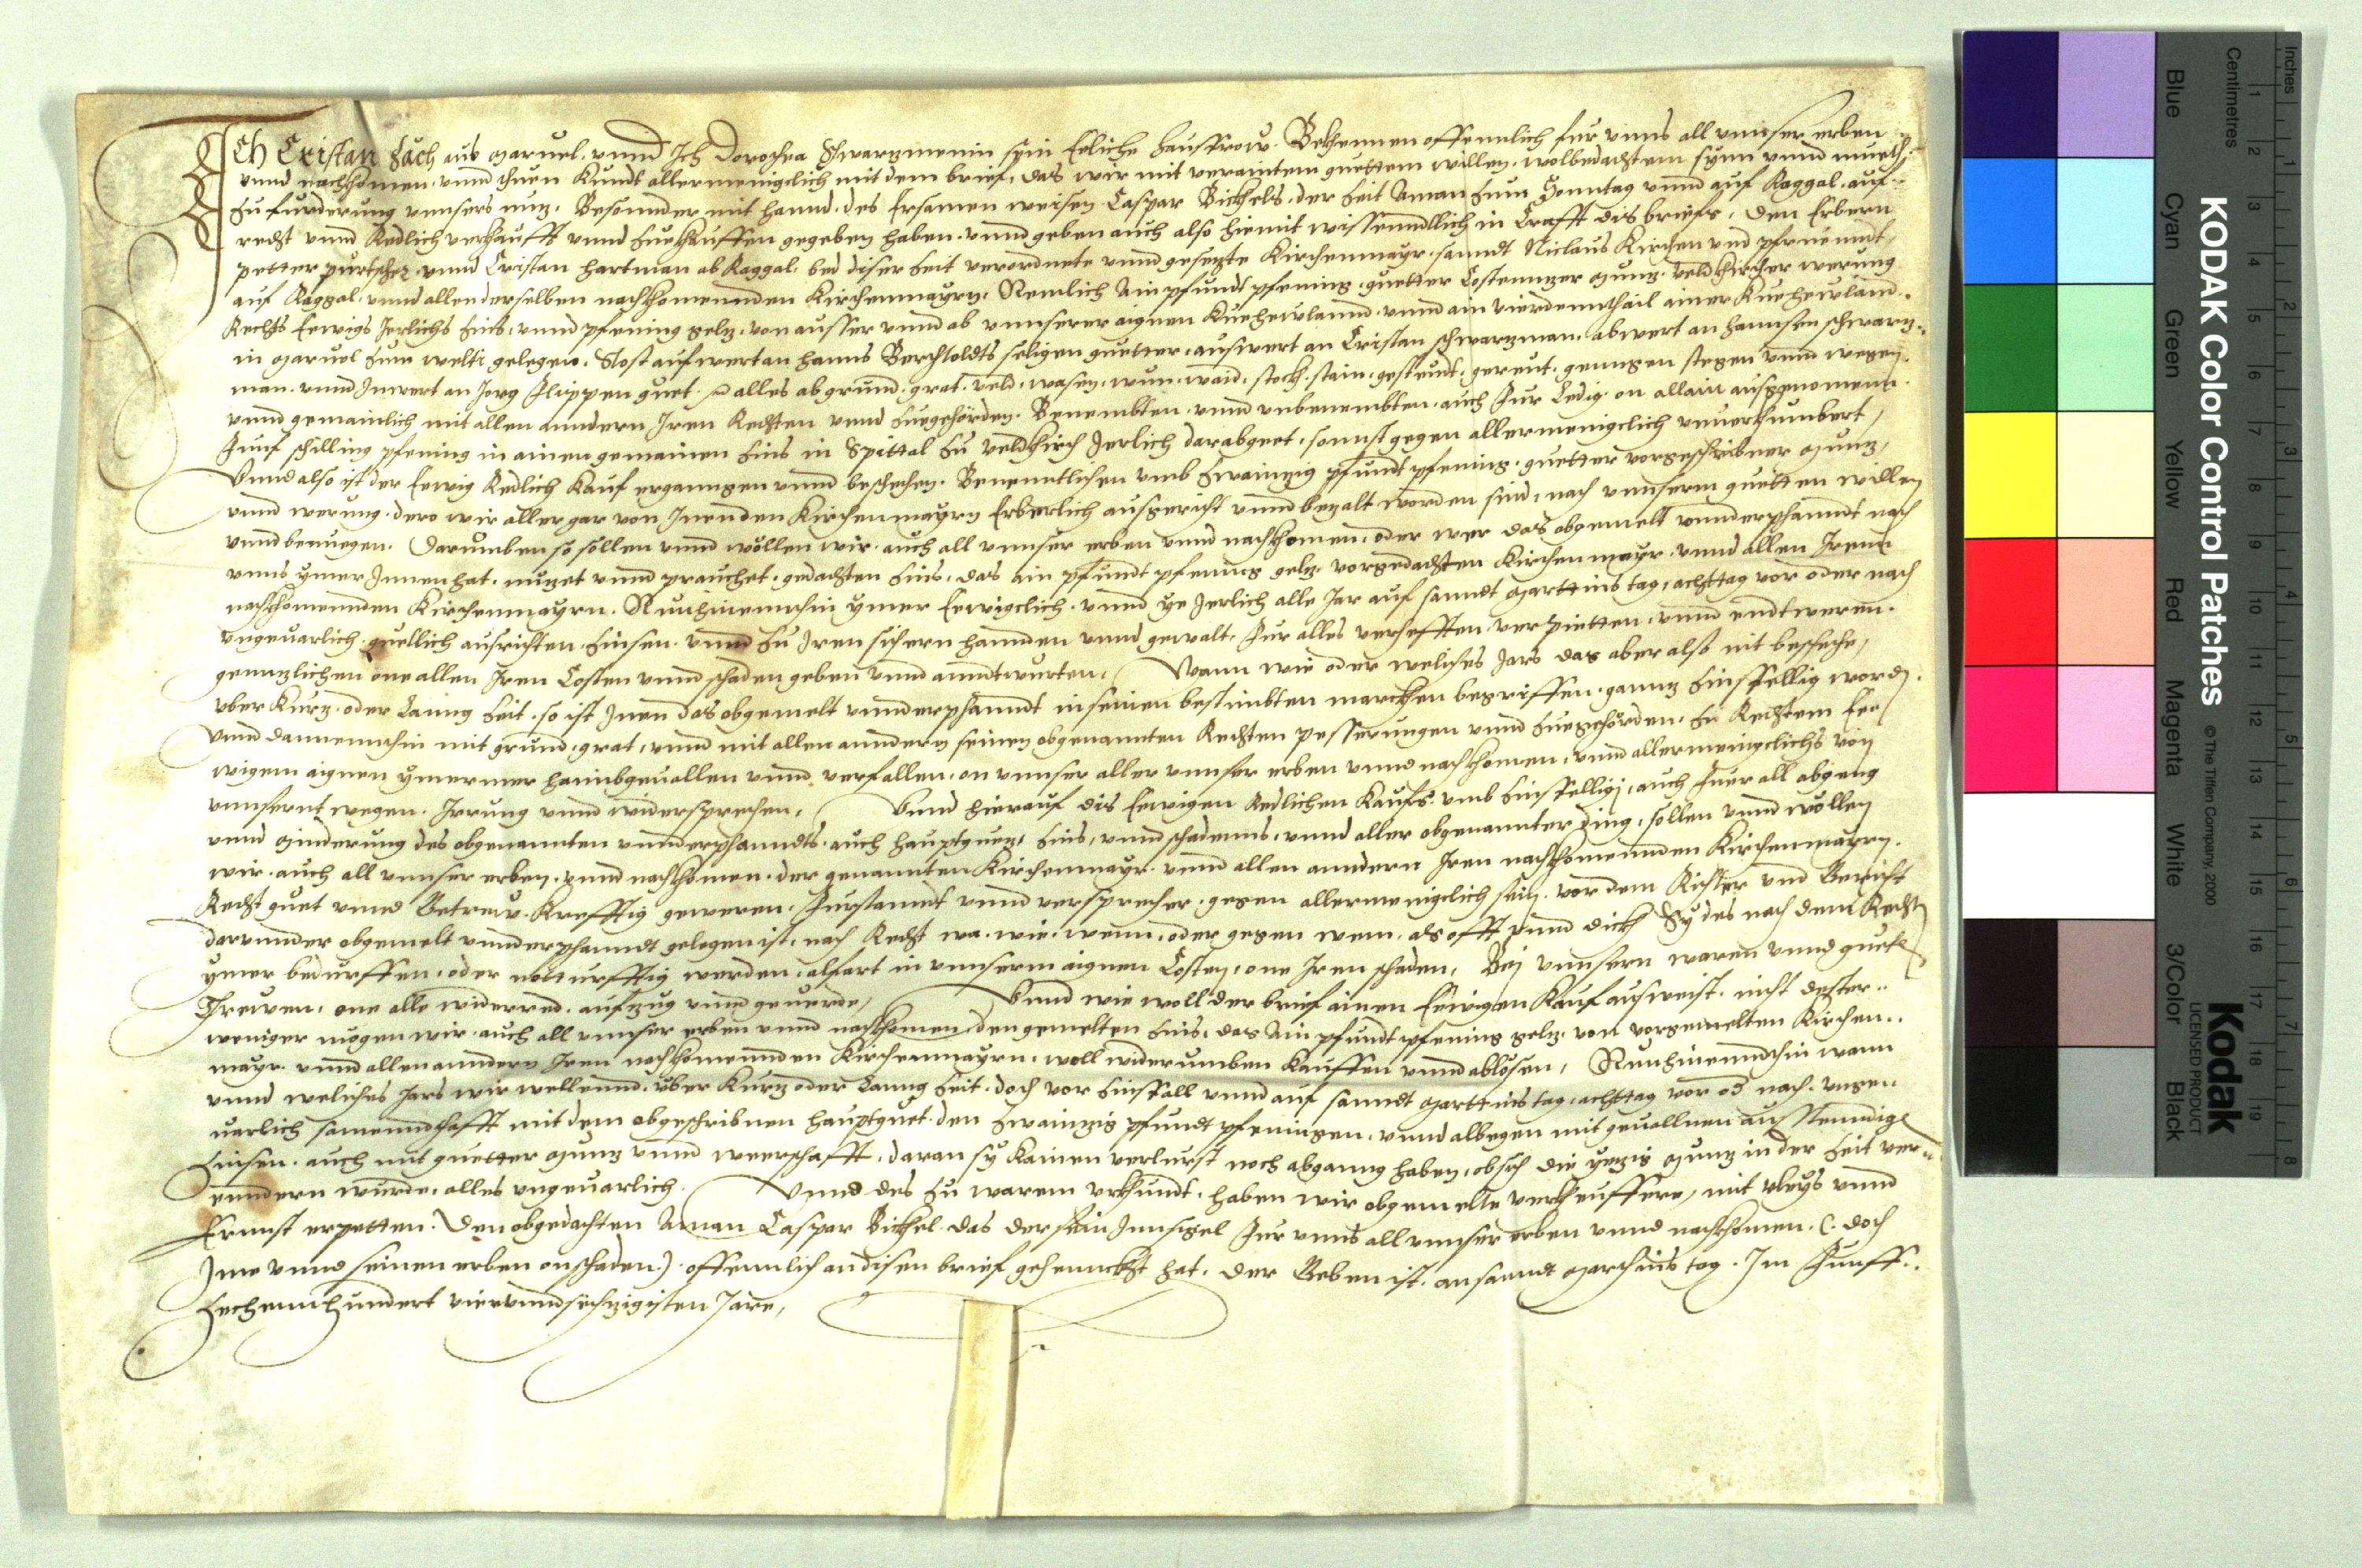 Ich Cristan Zäch aus Maruel, vnnd Ich Dorothea Schwarzmenin sein Eeliche hausfrow. Bekhennen offennlich fur vnns all vnnser erben
vnnd nachkhomen, vnnd thuen kundt allermenigclich mit dem brief, das wir mit veraintem guettem willen, wolbedachtem synn vnnd mueth,
zu furderung vnnsers nuz. Besonnder mit hannd, des Ersamen weisen Caspar Bickhels, der Zeit Aman zum Sonntag vnnd auf Raggal, auf-
recht vnnd Redlich verkhaufft vnnd zuekhauffen gegeben haben, vnnd geben auch also hiemit wissenndlich in Crafft dis briefs, den Erbern
petter purtscher vnnd Cristan hartman ab Raggal, bed diser Zeit verordnete vnnd gesezte Kirchenmayr, sanndt Niclaus Kirchen vnd pfruenndt,
auf Raggal, vnnd allen derselben nachkhomennden Kirchenmayrn, Nemlich Ain pfundt pfening, guetter Costennzer Munz, Veldkhircher werung
Rechts Eewigs Jerlichs Zins, vnnd pfening gelz, von ausser vnnd ab vnnserer aignen Kuehewlannd, vnnd ain vierdennthail ainer Kuehewland,
in Maruel zum welti gelegen. Stost aufwert an hanns Berchtoldts seligen guetter, auswert an Cristan schwarzman, abwert an hannsen schwarz-
man, vnnd Inwert an Jorg Ilippen guet. alles ab grund, grat, veld, wasen, wun, waid, stockh, stain, gesteudt, gereut, genngen stegen vnnd wegen,
vnnd gemainlich mit allen anndern Iren Rechten vnnd zuegehörden. Benembten vnnd vnbenembten, auch fur Ledig, on allain ausgenomenn
funf schilling pfening in ainen gemainen Zins in Spittal zu Veldkhirch Jerlich darabgeet, sonnst gegen allermenigclich vnuerkhumbert,
Vnnd also ist der Eewig Redlich Kauf erganngen vnnd beschechen. Benenntlichen vmb zwainzig pfundt pfening, guetter vorgeschribner Munz,
vnnd werung, dero wir aller gar von Inen den Kirchenmayrn Erberlich ausgericht vnnd bezalt worden sind, nach vnnserm guetten willen
vnnd benuegen. Darumben so söllen vnnd wöllen wir auch all vnnser erben vnnd nachkhomen, oder wer das obgemelt vnnderpfanndt nach
vnns ymer Innen hat, nuzet vnnd prauchet, gedachten Zins, das ain pfundt pfening gelz, vorgedachten Kirchenmayr, vnnd allen Irenn
nachkhomennden Kirchenmayrn. Nunhinennthin ymer Eewigclich, vnnd ye Jerlich alle Jar auf sanndt Marttins tag, achttag vor oder nach
vngeuarlich guetlich ausrichten, Zinsen, vnnd zu Iren sichern hannden vnnd gewalt, fur alles verhefften, verpietten, vnnd endtweren,
genzlichen one allen Iren Costen vnnd schaden geben vnnd anndtwurten. Wann wie oder weliches Jars das aber also nit bescheche,
vber Kurz oder Lanng Zeit, so ist Inen das obgemelt vnnderpfanndt in seinen bestimbten marckhen begriffen, gannz Zinsfellig worden,
Vnnd dannennthin mit grund, grat, vnnd mit allen anndern seinen obgenannten Rechten pesserungen vnnd zuegehörden, zu Rechtem Ee-
wigem aignen ymermer haimbgeuallen vnnd verfallen, on vnnser aller vnnser erben vnnd nachkhomen, vnnd allermenigclichs von
vnnsernt wegen, Irrung vnnd widersprechen, Vnnd hierauf dis Eewigen Redlichen Kaufs, vmb Zinsfellig, auch fuer all abgeng
vnnd Minderung des obgenannten vnnderpfanndts, auch hauptguez, Zins, vnnd schadenns, vnnd aller obgenannter ding, söllen vnnd wöllen
wir, auch all vnnser erben, vnnd nachkhomen, der genannten Kirchenmayr, vnnd allen anndern Iren nachkhomennden Kirchenmayrn,
Recht guet vnnd Getrew, Krefftig geweren, furstanndt vnnd versprecher, gegen allermenigclich sein, vor dem Richter vnd Gericht
darunnder obgemelt vnnderpfanndt gelegen ist, nach Recht, wa, wie, wenn, oder gegen wem, als offt vnnd dickh Sy des nach dem Rechten
ymer bedurfften, oder notturfftig werden, alfart in vnnserm aignen Costen, one Iren schaden, Bej vnnsern waren vnnd gueten
Threwen, one alle widerred, aufzug vnnd geuerde, Vnnd wie woll der brief ainen Eewigen Kauf ausweist, nicht dester-
weniger mögen wir, auch all vnnser erben vnnd nachkhomen, den gemelten Zins, das Ain pfundt pfening gelz, von vorgemelten Kirchen-
mayr, vnnd allen anndern Iren nachkhomennden Kirchenmayrn, woll widerumben Kauffen vnnd ablösen, Nunhinennthin wann
vnnd weliches Jars wir wellennd, vber Kurz oder Lanng Zeit, doch vor Zinsfall vnnd auf sanndt Marttins tag, achttag vor od nach, vngeu-
uarlich samenndthafft mit dem obgeschribnen hauptguet, den zwainzig pfundt pfeningen, vnnd albegen mit geuallnen ausstenndigen
Zinsen, auch mit guetter Munz vnnd weerschafft, daran sy Kainen verlurst noch abganng haben, ob sich die yezig Munz in der Zeit ver-
enndern wurde, alles vngeuarlich. Vnnd des zu warem vrkhundt, haben wir obgemelte verkheuffere, mit vleys vnnd
Ernnst erpetten. Den obgedachten Aman Caspar Bickhel, das der sein Innsigel fur vnns all vnnser erben vnnd nachkhomen. (doch
Ime vnnd seinen erben onschaden) offennlich an disen brief gehennckht hat. Der Geben ist, an sanndt Marthins tag. Im Funff-
zechennhundert vierunndsechzigisten Jare,
KODAK Color Control Patches
© The Tiffen Company, 2000
Kodak
LICENSED PRODUCT
Inches
Centimetres
1 2 3 4 5 6 7 8
1 2 3 4 5 6 7 8 9 10 11 12 13 14 15 16 17 18 19
Blue Cyan Green Yellow Red Magenta White 3/Color Black